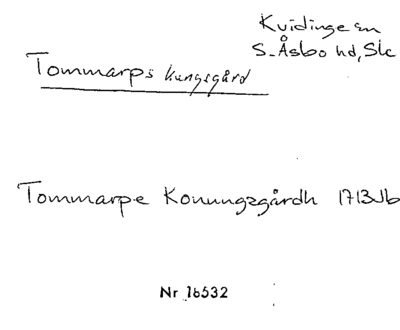 Kvidinge sn
S. Åsbo hd, Sk
Tommarps kungsgård
Tommarpe Konungzgårdh 1713 Jb
Nr 16532